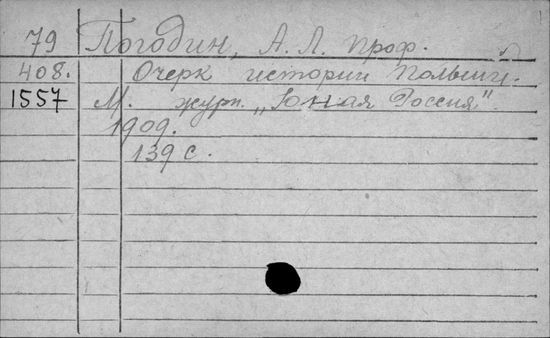 79 Погодин, А. Л. проф.
408. Очерк истории Польши.
1557 М. журн. „Юная Россия".
1909.
139 с.